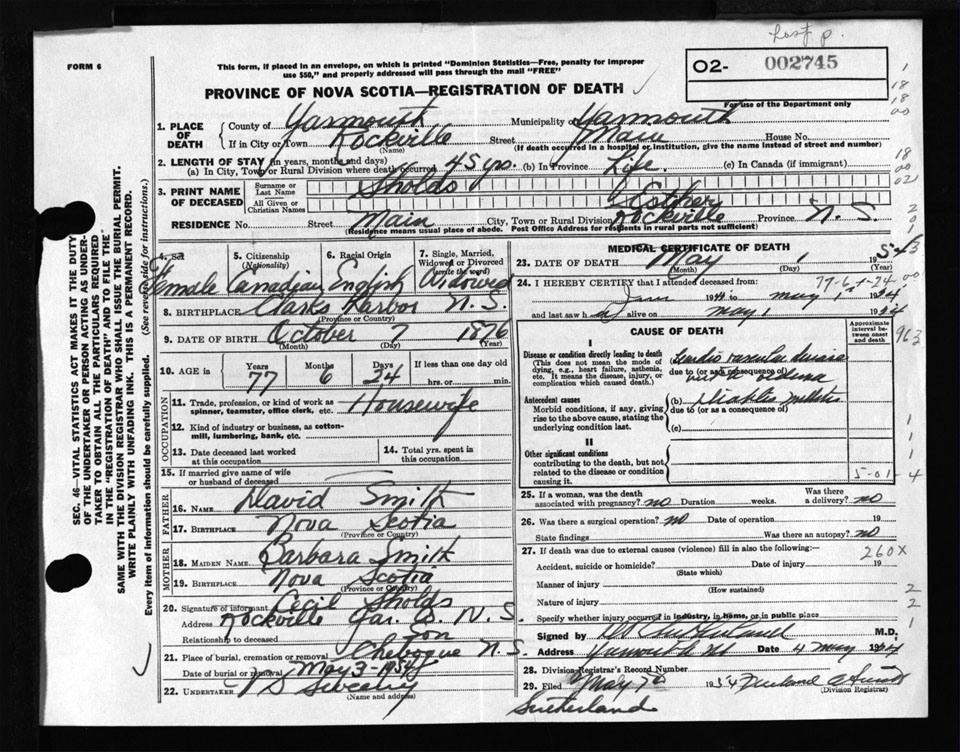 Last p.
FORM 6
This form, if placed in an envelope, on which is printed "Dominion Statistics—Free, penalty for improper
use $50," and properly addressed will pass through the mail "FREE"
O2- 002745
For use of the Department only
PROVINCE OF NOVA SCOTIA—REGISTRATION OF DEATH
1. PLACE OF DEATH
County of Yarmouth Municipality of Yarmouth
If in City or Town Rockville Street Main House No.
(Name) (If death occurred in a hospital or institution, give the name instead of street and number)
2. LENGTH OF STAY (in years, months and days)
a) In City, Town or Rural Division where death occurred 45 yrs. (b) In Province Life. (c) In Canada (if immigrant)
3. PRINT NAME OF DECEASED
Surname or Last Name Sholds
All Given or Christian Names Esther
RESIDENCE No. Street Main City, Town or Rural Division Rockville Province N. S.
(Residence means usual place of abode. Post Office Address for residents in rural parts not sufficient)
4. Sex Female
5. Citizenship (Nationality) Canadian
6. Racial Origin English
7. Single, Married, Widowed or Divorced (write the word) Widowed
8. BIRTHPLACE Clarks Harbor N. S.
(Province or Country)
9. DATE OF BIRTH October 7 1876
(Month) (Day) (Year)
10. AGE in Years 77 Months 6 Days 24 If less than one day old hrs. or min.
OCCUPATION
11. Trade, profession, or kind of work as spinner, teamster, office clerk, etc. Housewife
12. Kind of industry or business, as cotton-mill, lumbering, bank, etc.
13. Date deceased last worked at this occupation
14. Total yrs. spent in this occupation
15. If married give name of wife or husband of deceased
FATHER
16. NAME David Smith
17. BIRTHPLACE Nova Scotia
(Province or Country)
MOTHER
18. MAIDEN NAME Barbara Smith
19. BIRTHPLACE Nova Scotia
(Province or Country)
20. Signature of informant Cecil Sholds
Address Rockville Yar. Co. N. S.
Relationship to deceased Son
21. Place of burial, cremation or removal Chebogue N. S.
Date of burial or removal May 3 - 1954
22. UNDERTAKER
(Name and address)
MEDICAL CERTIFICATE OF DEATH
23. DATE OF DEATH May 1 1954
(Month) (Day) (Year)
24. I HEREBY CERTIFY that I attended deceased from: 77-6-24
to May 1 1954
and last saw h alive on May 1 1954
CAUSE OF DEATH
Approximate interval between onset and death
I
Disease or condition directly leading to death
(This does not mean the mode of dying, e.g., heart failure, asthenia, etc. It means the disease, injury, or complication which caused death.)
Cardio vascular disease
due to (or as a consequence of)
with oedema
Antecedent causes
Morbid conditions, if any, giving rise to the above cause, stating the underlying condition last.
(b) diabetes mellitus
due to (or as a consequence of)
(c)
II
Other significant conditions
contributing to the death, but not related to the disease or condition causing it.
5-01-4
25. If a woman, was the death associated with pregnancy? no Duration weeks. Was there a delivery? no
26. Was there a surgical operation? no Date of operation 19
State findings Was there an autopsy? no
27. If death was due to external causes (violence) fill in also the following:—
260X
Accident, suicide or homicide? Date of injury 19
(State which)
Manner of injury
(How sustained)
Nature of injury
Specify whether injury occurred in industry, in home, or in public place
Signed by M.D.
Address Yarmouth NS Date 4 May 1954
28. Division Registrar's Record Number
29. Filed May 7th 1954
(Division Registrar)
Sutherland
SEC. 46—VITAL STATISTICS ACT MAKES IT THE DUTY
OF THE UNDERTAKER OR PERSON ACTING AS UNDER-
TAKER TO OBTAIN ALL THE PARTICULARS REQUIRED
IN THE "REGISTRATION OF DEATH" AND TO FILE THE
SAME WITH THE DIVISION REGISTRAR WHO SHALL ISSUE THE BURIAL PERMIT.
WRITE PLAINLY WITH UNFADING INK. THIS IS A PERMANENT RECORD.
Every item of information should be carefully supplied. (See reverse side for instructions.)